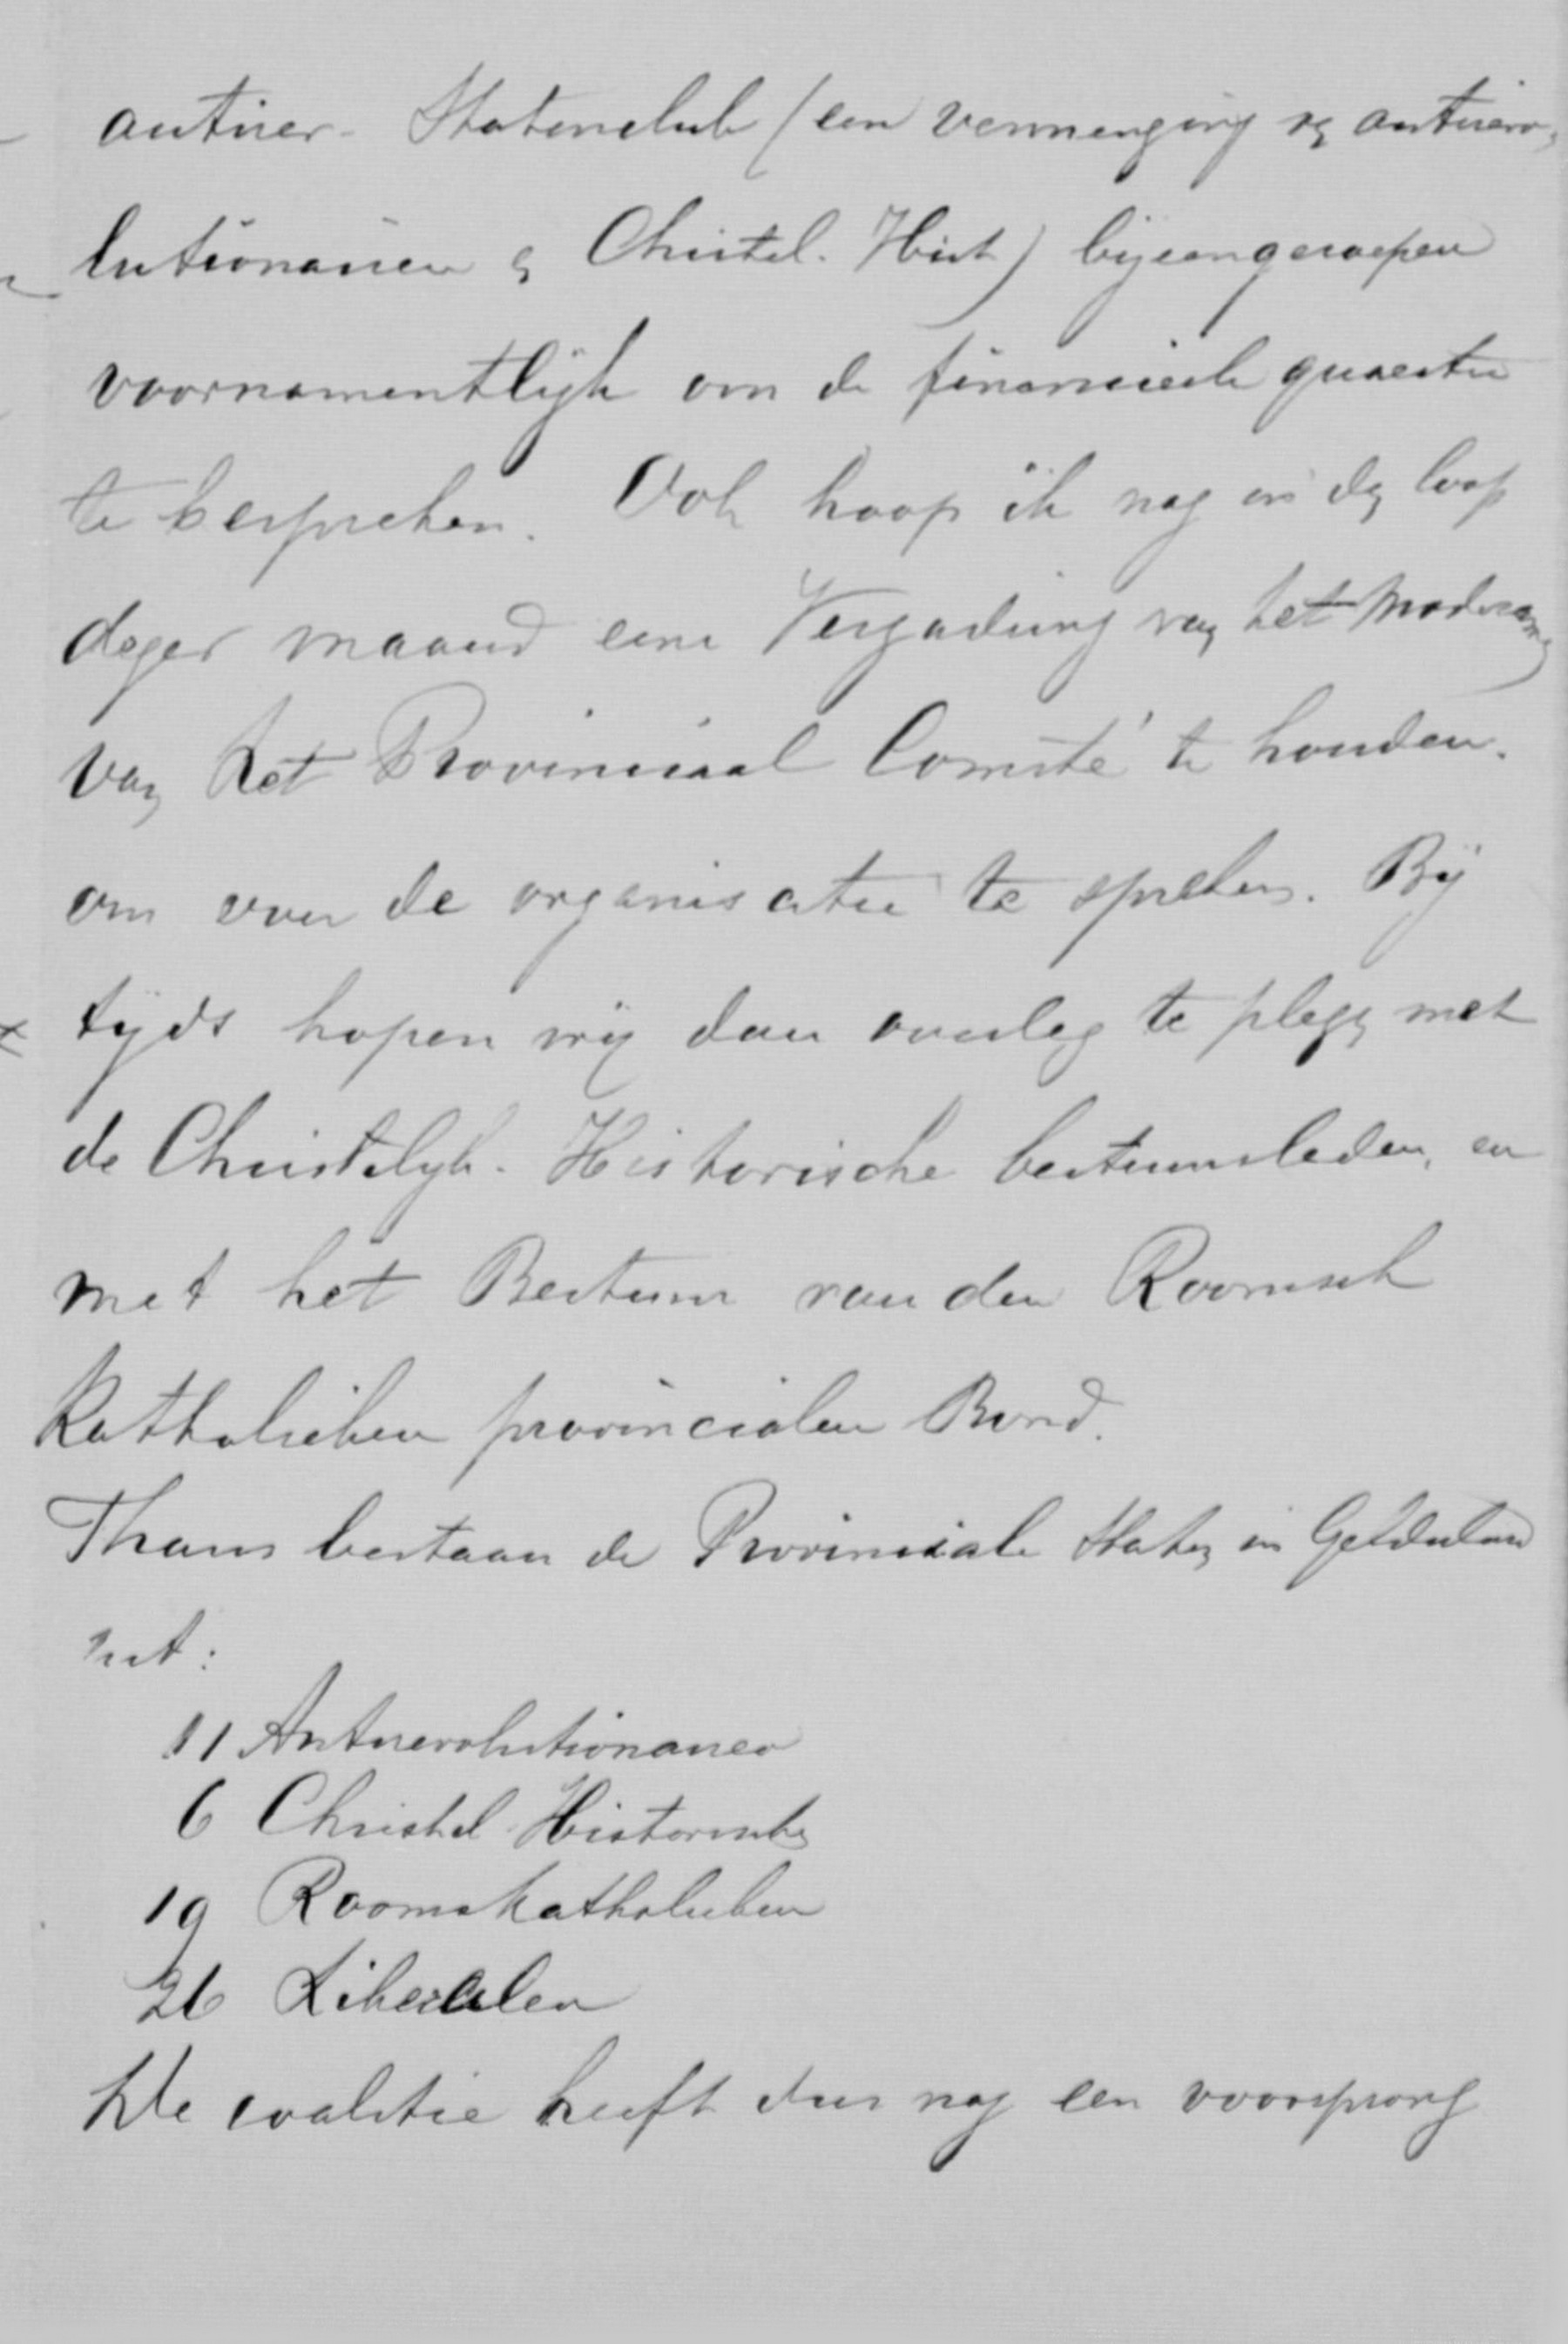 antirev. Statenclub (een vermenging v. antirevo-
lutionairen & Christel. Hist) bijeengeroepen
voornamentlijk om de financieele quaestie
te bespreken. Ook hoop ik nog in den loop
dezer maand eene Vergadering van het Moderamen
van het Provinciaal Comité te houden.
om over de organisatie te spreken. Bij
tijds hopen wij dan overleg te plegen met
de Christelijk-Historische bestuursleden, en
met het Bestuur van den Roomsch
Katholieken provincialen Bond.
Thans bestaan de Provinciale Staten in Gelderland
uit:
11 Antirevolutionairen
6 Christel Historische
19 Roomskatholieken
26 Liberalen
De coalitie heeft dus nog een voorsprong